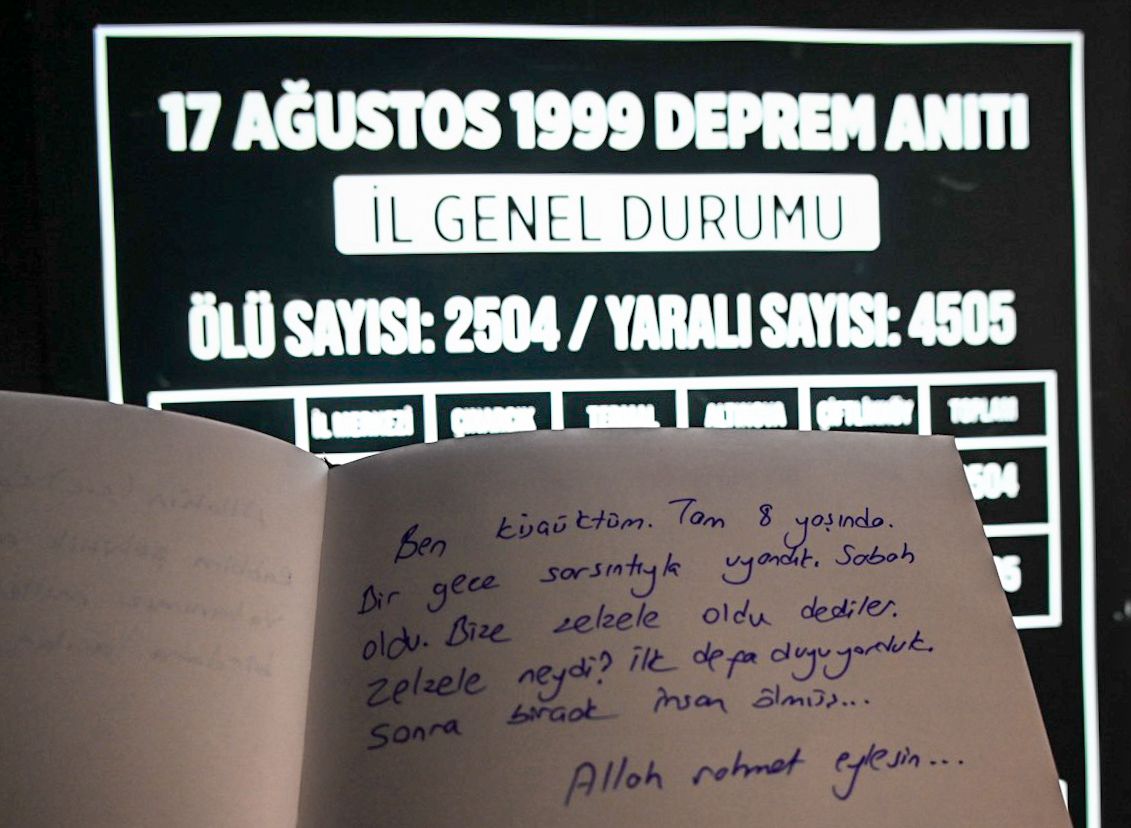 17 AĞUSTOS 1999 DEPREM ANITI
İL GENEL DURUMU
ÖLÜ SAYISI: 2504 / YARALI SAYISI: 4505
İL MERKEZİ ÇINARCIK TERMAL ALTINOVA ÇİFTLİKKÖY TOPLAM
504
05
Ben küçüktüm. Tam 8 yaşında.
Bir gece sarsıntıyla uyandık. Sabah
oldu. Bize zelzele oldu dediler.
Zelzele neydi? İlk defa duyuyorduk.
Sonra birçok insan ölmüş...
Allah rahmet eylesin...